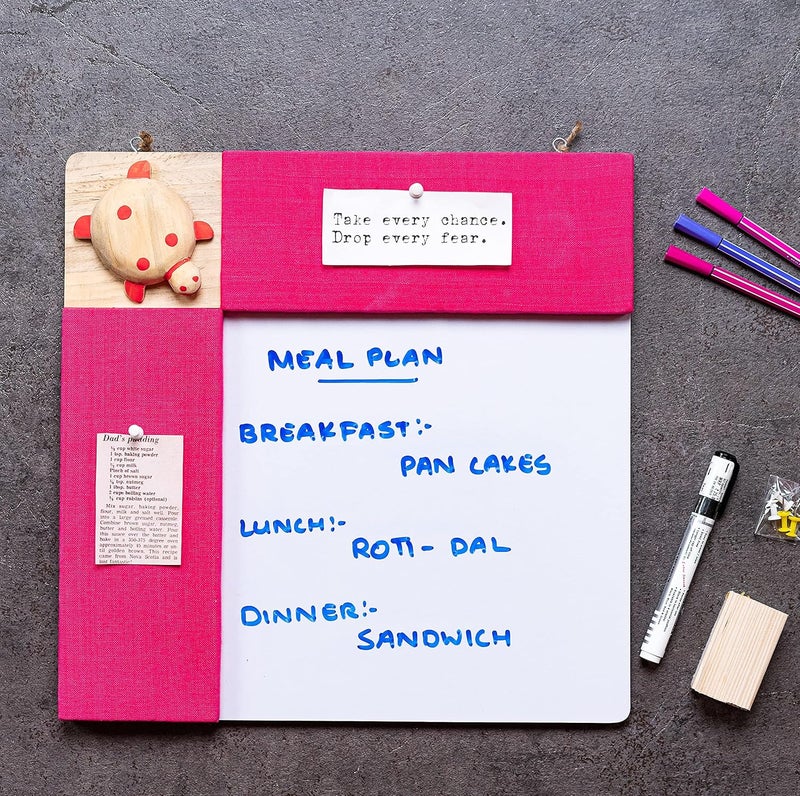 Take every chance.
Drop every fear.
MEAL PLAN
BREAKFAST:-
PAN CAKES
LUNCH:-
ROTI - DAL
DINNER:-
SANDWICH
Dad's pudding
¾ cup white sugar
1 tsp. baking powder
1 cup flour
½ cup milk
Pinch of salt
1 cup brown sugar
¼ tsp. nutmeg
1 tbsp. butter
2 cups boiling water
¾ cup raisins (optional)
Mix sugar, baking powder,
flour, milk and salt well. Pour
into a large greased casserole.
Combine brown sugar, nutmeg,
butter and boiling water. Pour
this sauce over the batter and
bake in a 350-375 degree oven
approximately 45 minutes or un-
til golden brown. This recipe
came from Nova Scotia and is
just fantastic!